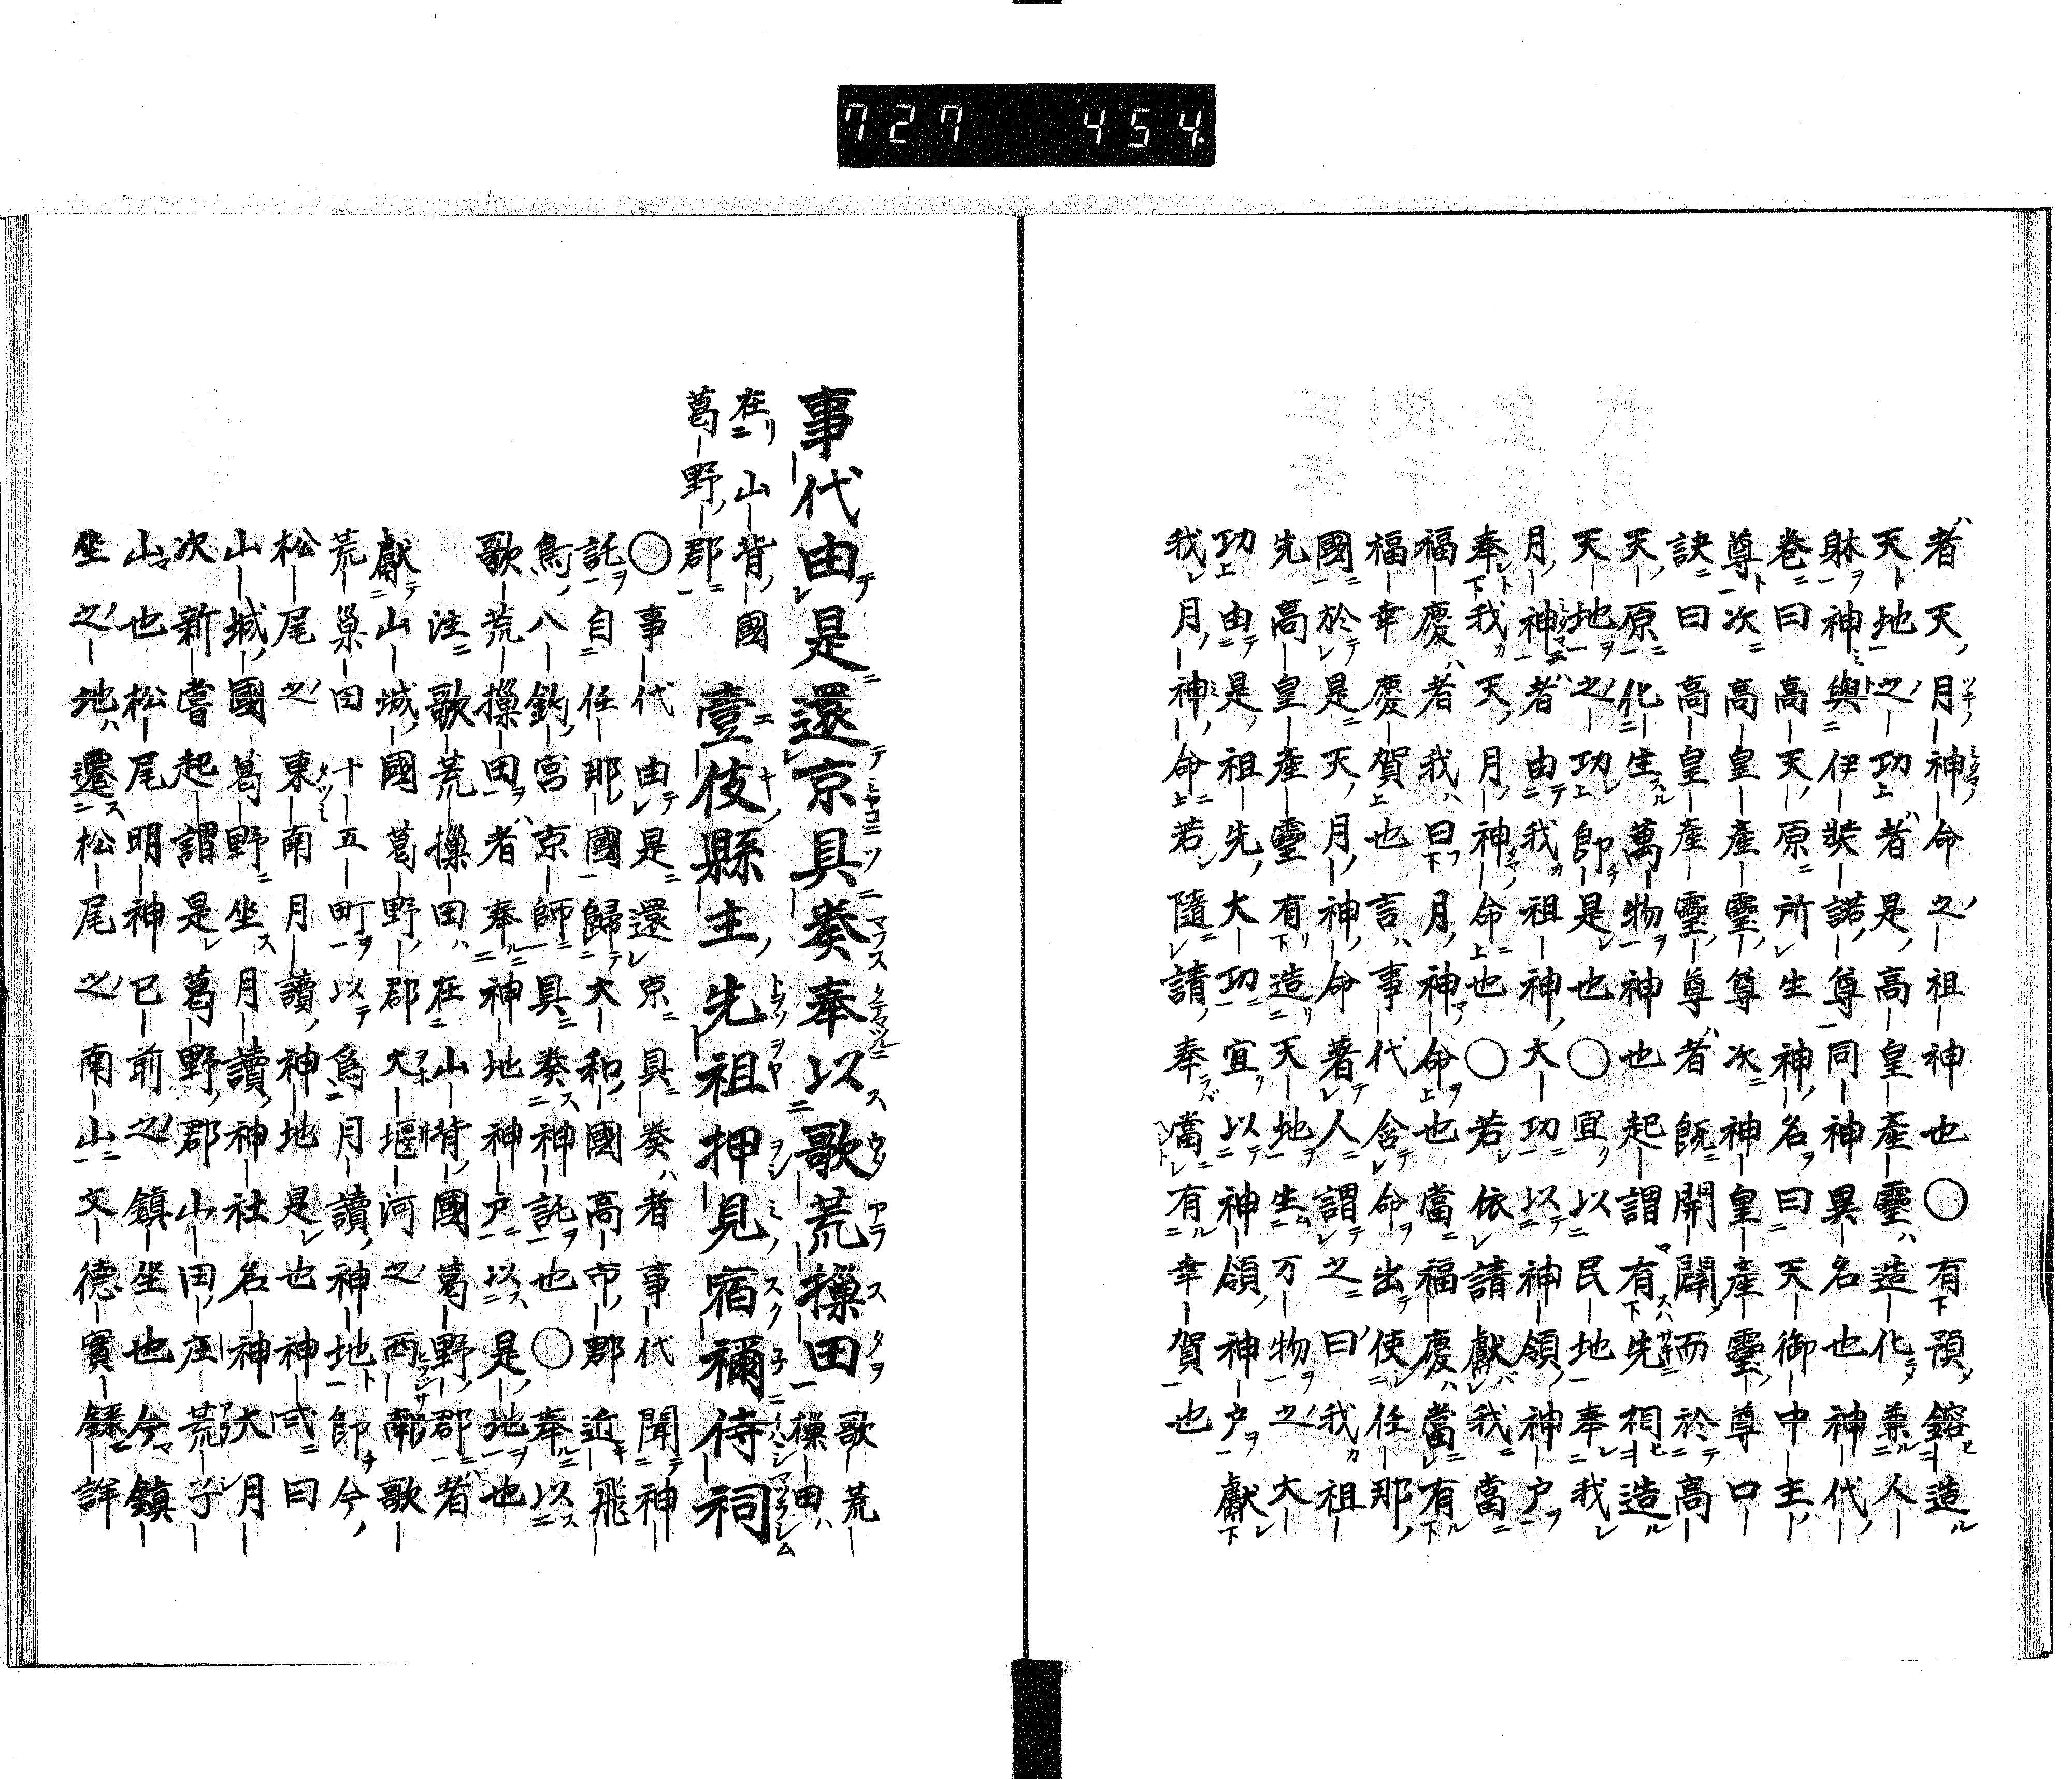 727 454.
者天月神命之祖神也○有預鎔造
天地之功者是高皇産靈造化兼人
躰神與伊弉諾尊同神異名也神代
巻曰高天原所生神名曰天御中主
尊次高皇産靈尊次神皇産靈尊口
訣曰高皇産靈尊者既開闢而於高
天原化生萬物神也起謂有先相造
天地之功即是也○宜以民地奉我
月神者由我祖神大功以神領神戸
奉我天月神命也○若依請獻我當
福慶者我曰月神命也當福慶當有
福幸慶賀也言事代含命出使任那
國於是天月神命著人謂之曰我祖
先高皇産靈有造天地生万物之大
功由是祖先大功宜以神領神戸獻
我月神命若隨請奉當有幸賀也
事代由是還京具奏奉以歌荒樔田
歌荒
樔田
在山背國
葛野郡
壹伎縣主先祖押見宿禰侍祠
○事代由是還京具奏者事代聞神
託自任那國歸大和國高市郡近飛
鳥八釣宮京師具奏神託也○奉以
歌荒樔田者奉神地神戸以是地也
注歌荒樔田在山背國葛野郡者
獻山城國葛野郡大堰河之西南歌
荒巢田十五町以爲月讀神地即今
松尾之東南月讀神地是也神式曰
山城國葛野坐月讀神社名神大月
次新嘗起謂是葛野郡山田庄荒子
山也松尾明神已前之鎮坐也今鎮
坐之地遷松尾之南山文德實錄詳